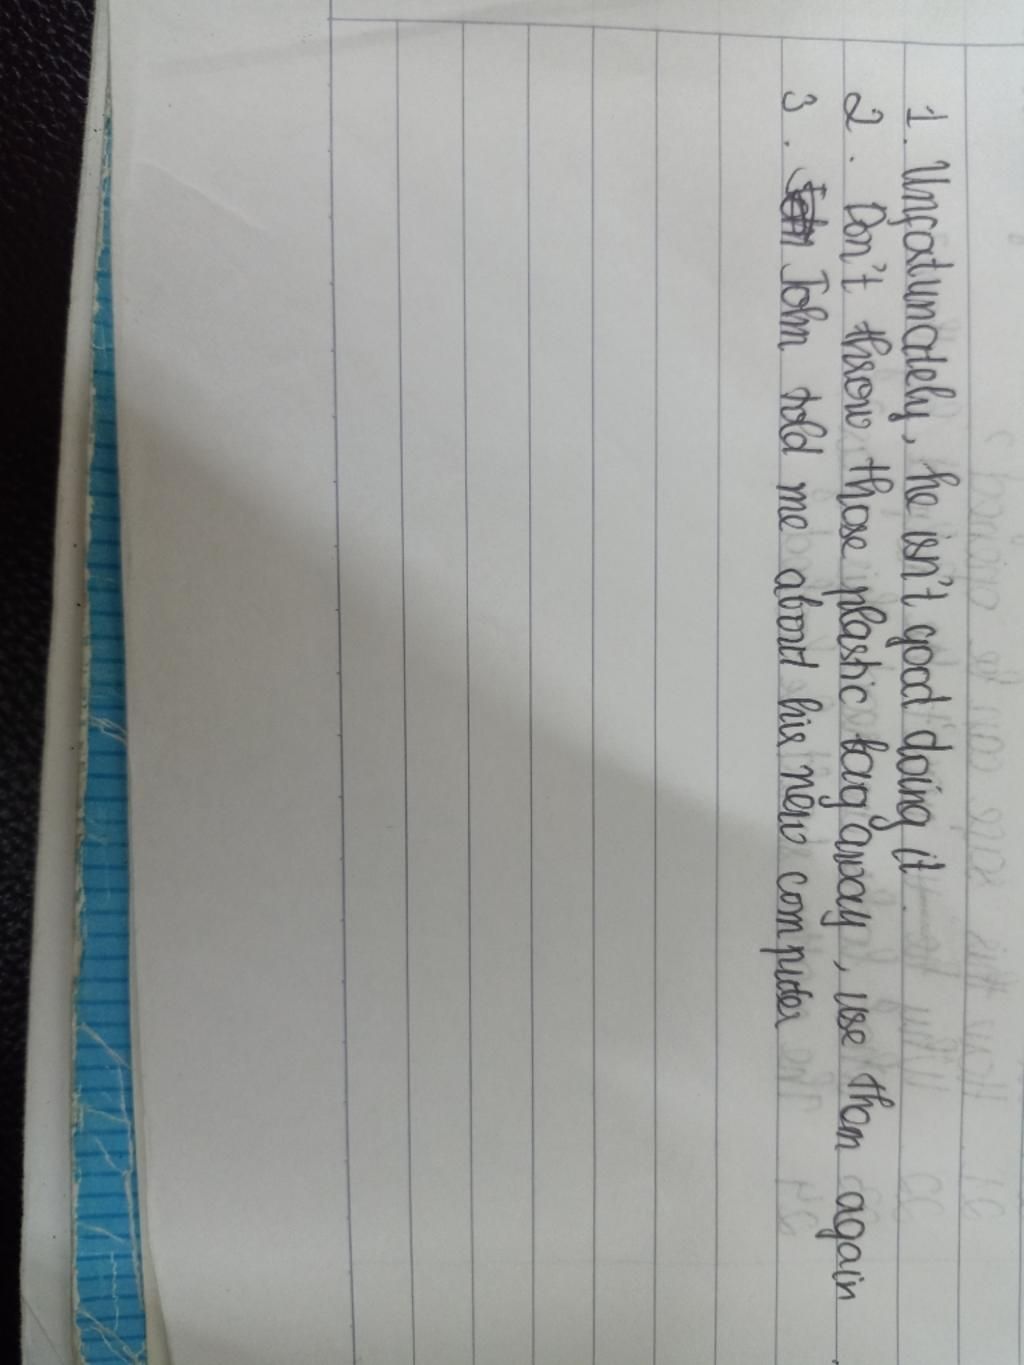 1. Unfatunately, he isn't good doing it.
2. Don't throw those plastic bag away, use them again.
3. John told me about his new computer